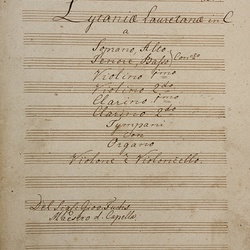 Lytaniæ Lauretanæ in C
a
Soprano, Alto
Tenore, Basso Con:to
Violino 1mo
Violino 2do
Clarino 1mo
Clarino 2do
Tympani
Con
Organo
Violone e Violoncello.
Del Sigl: Giov: Fuchs
Maestro d. Capella